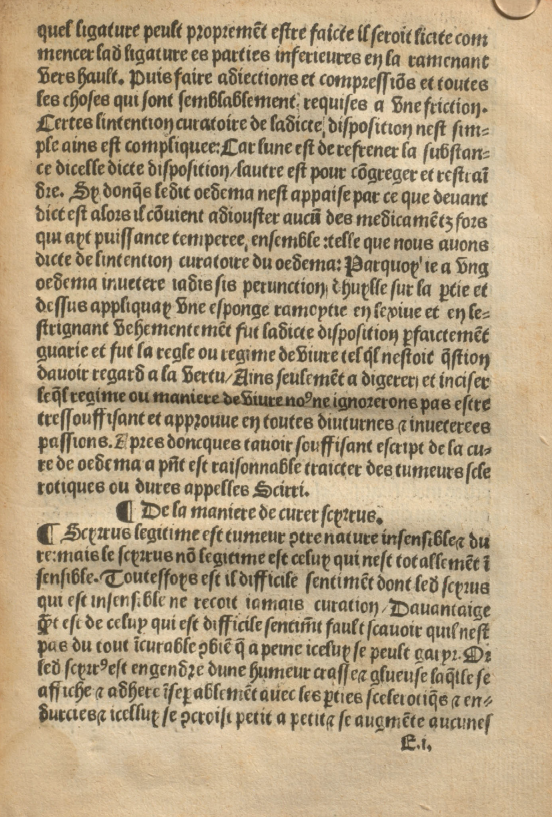 quel ligature peult propremēt estre faicte il seroit licite com
mencer lad ligature es parties inferieures en la ramenant
vers hault. Puis faire adiections et compressiōs et toutes
les choses qui sont semblablement requises a vne friction.
Certes lintention curatoire de ladicte disposition nest sim-
ple ains est compliquee: Car lune est de refrener la substan-
ce dicelle dicte disposition/lautre est pour cōgreger et restraī
dre. Sy donq̄s ledit oedema nest appaise par ce que deuant
dict est alors il cōuient adiouster aucū des medicamētz fors
qui ayt puissance temperee ensemble :telle que nous auons
dicte de lintention curatoire du oedema: Parquoy ie a vng
oedema inuetere iadis fis perunction dhuylle sur la ꝑtie et
dessus appliquay vne esponge rameptie en lexiue et en le-
strignant vehementemēt fut ladicte disposition ꝑfaictemēt
guarie et fut la regle ou regime de viure tel q̄l nestoit q̄stion
dauoir regard a la vertu/Ains seulemēt a digerer et inciser
leq̄l regime ou maniere de viure noꝰ ne ignorerons pas estre
tressouffisant et approuue en toutes diuturnes ⁊ inueterees
passions. Apres doncques tauoir souffisant escript de la cu-
re de oedema a pn̄t est raisonnable traicter des tumeurs scle
rotiques ou dures appelles Scirri.
¶ De la maniere de curer scyrrus.
¶ Scyrrus legitime est tumeur ꝯtre nature insensible ⁊ du
re: mais le scyrrus nō legitime est celuy qui nest totallemēt ī
sensible. Toutesfoys est il difficile sentimēt dont led scyrus
qui est insensible ne recoit iamais curation/Dauantaige
q̄t est de celuy qui est difficile sentimēt fault scauoir quil nest
pas du tout īcurable ꝯbiē q̄ a peine iceluy se peult garyr. Or
led scyrrꝰ est engendre dune humeur crasse ⁊ glueuse laq̄lle se
affiche ⁊ adhere īseꝑablemēt auec les ꝑties sclerotiq̄s ⁊ en-
durcies ⁊ icelluy se ꝯcroist petit a petit ⁊ se augmēte aucunes
E.i.